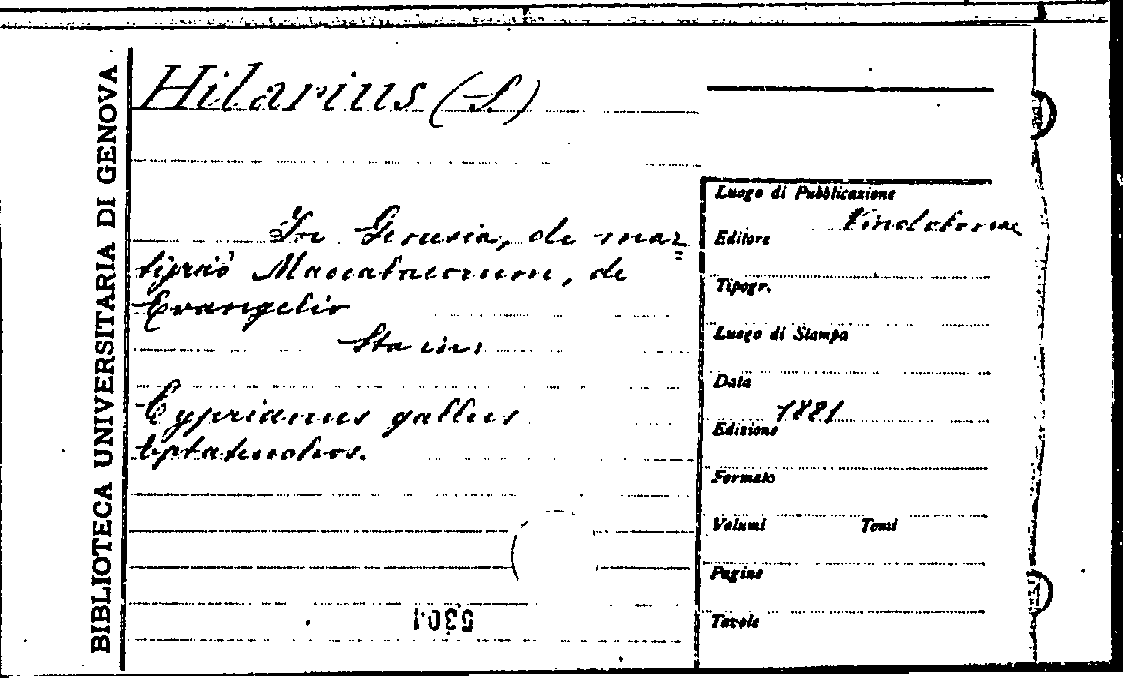 BIBLIOTECA UNIVERSITARIA DI GENOVA
Hilarius (S.)
In Genesin, de mar=
tyrio Maccabaeorum, de
Evangelio
Cyprianus gallus
Eptateuchos.
5301
Luogo di Pubblicazione
Vindobonae
Editore
Tipogr.
Luogo di Stampa
Data
1881
Edizione
Formato
Volumi Tomi
Pagine
Tavole